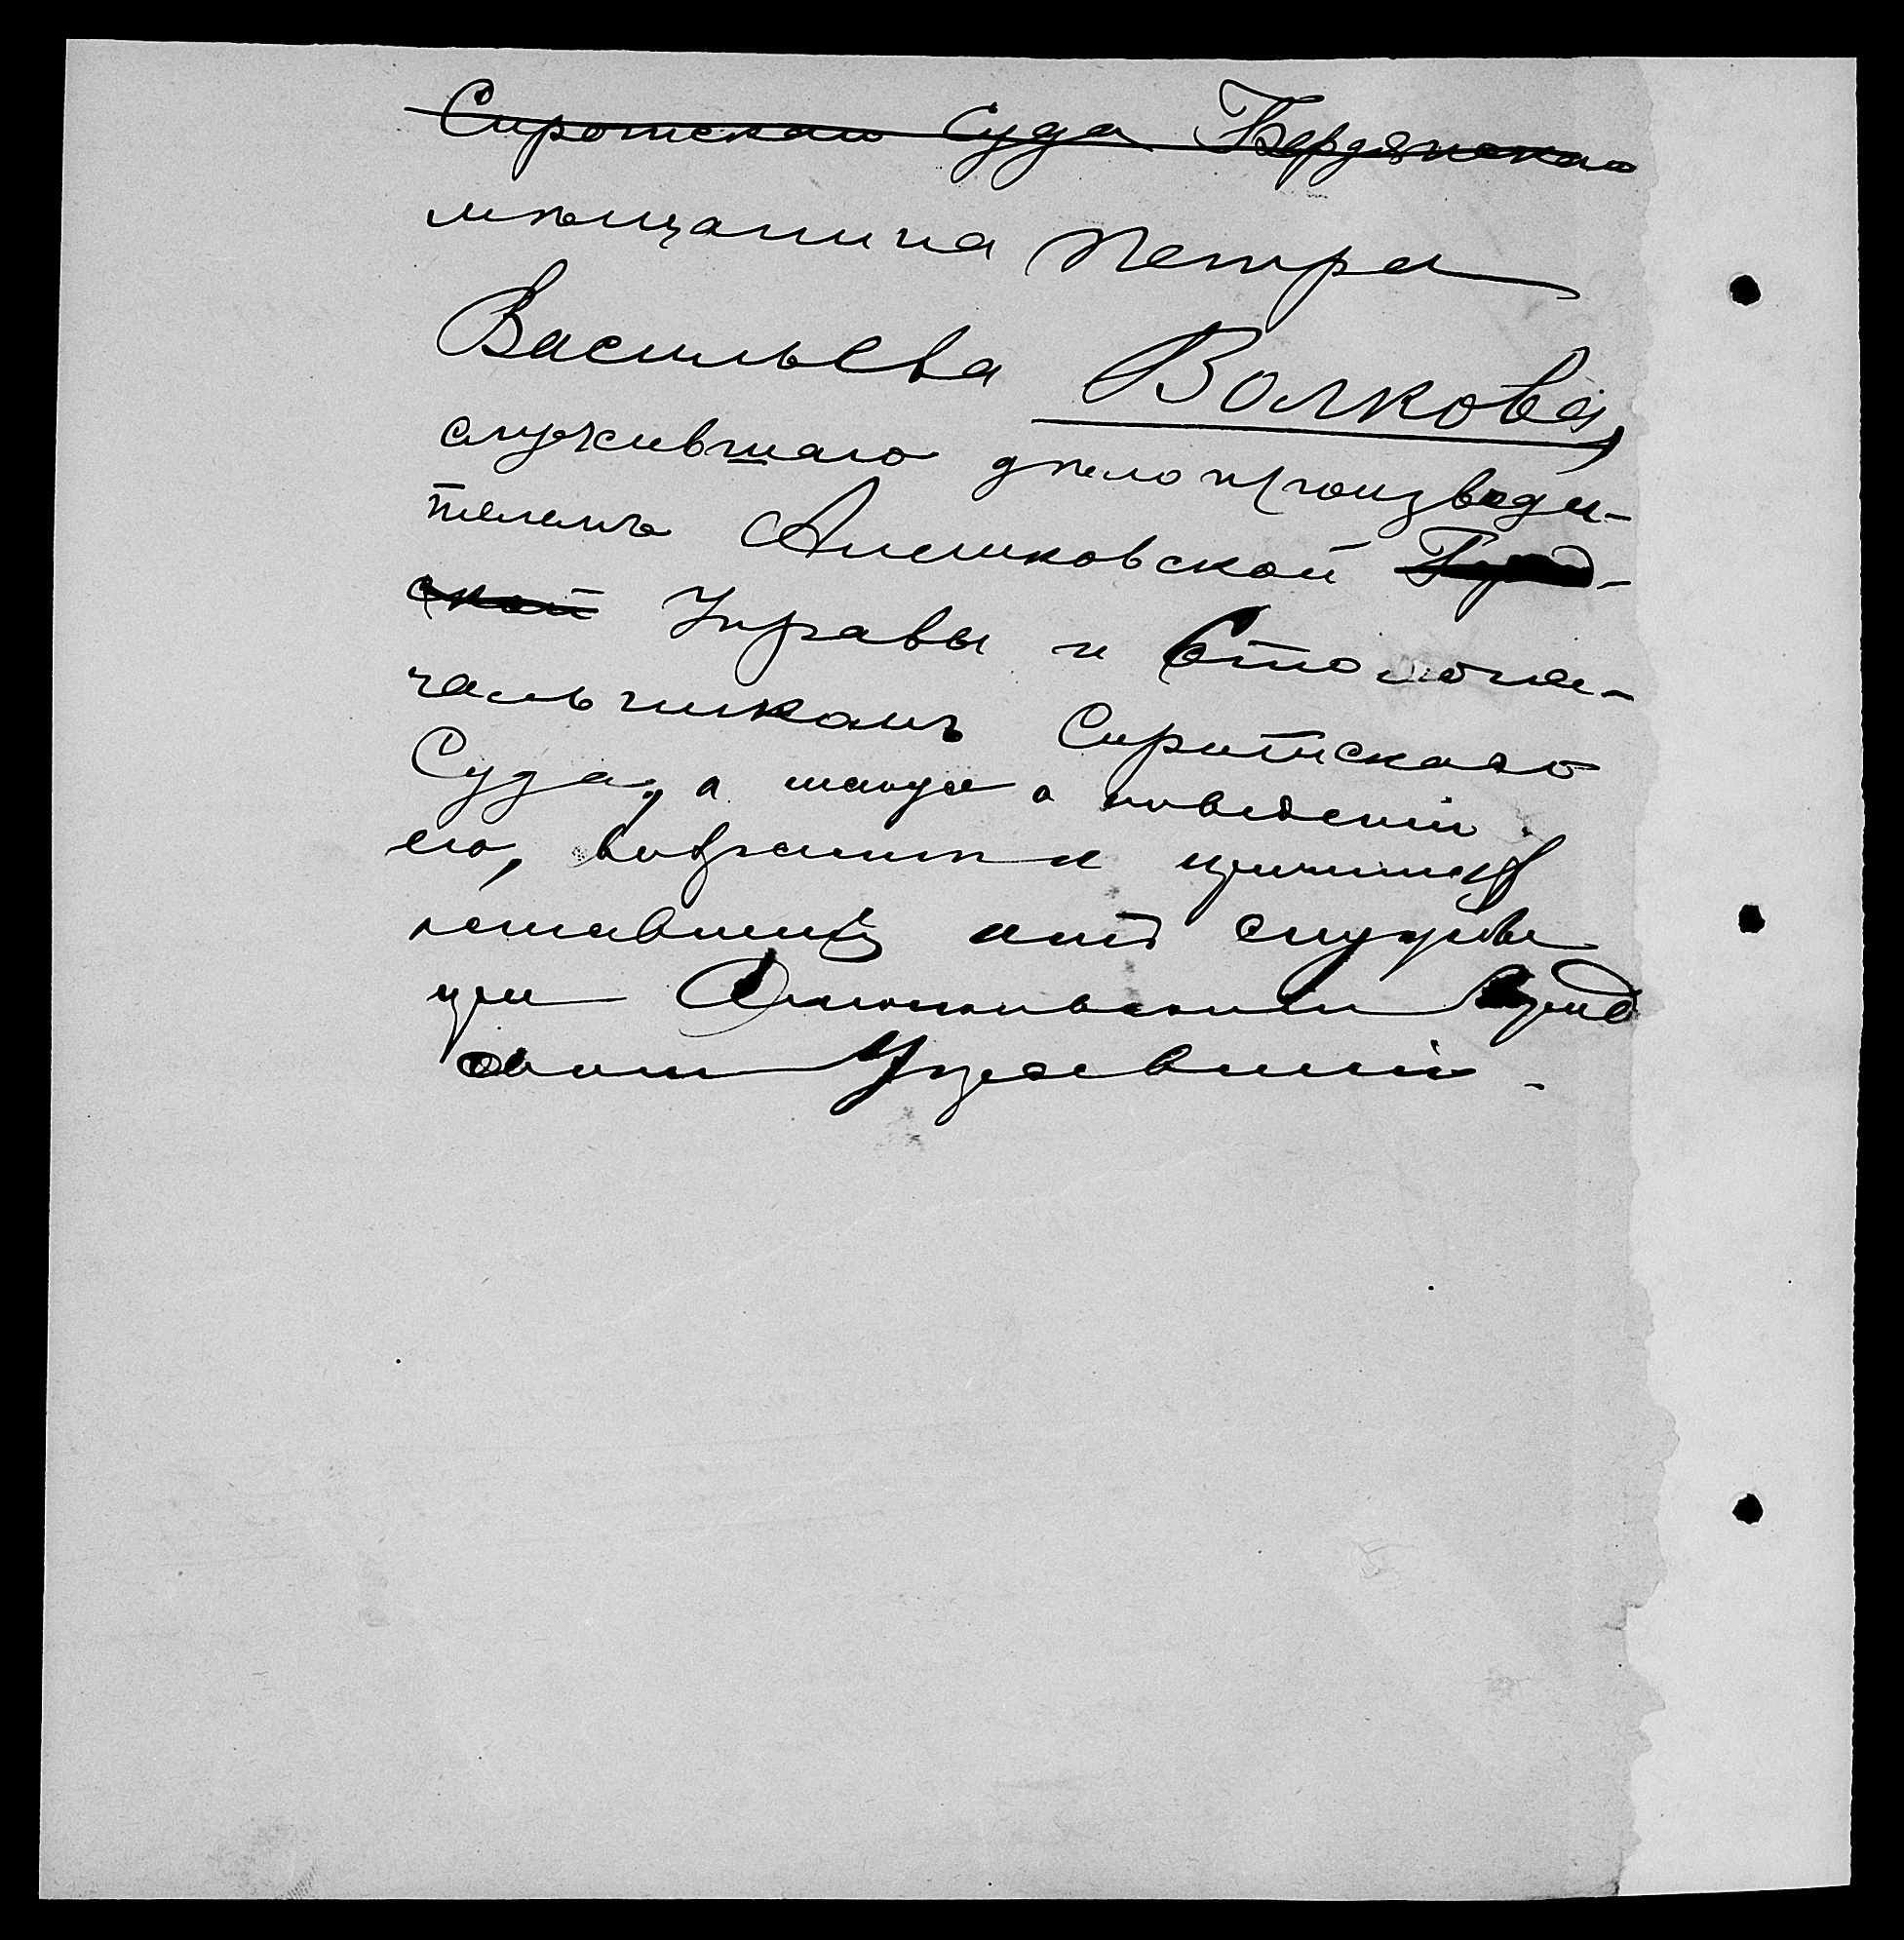 Сиротскаго Суда Бердянскаго
мѣщанина Петра
Васильева Волкова,
служившаго дѣлопроизводи-
телемъ Алешковской Город-
ской Управы и Столона-
чальникомъ Сиротскаго
Суда, а также о поведеніи
его, возрастѣ и причинѣ
оставленія имъ службы
при Алешковском Город
скомъ Управленіи.